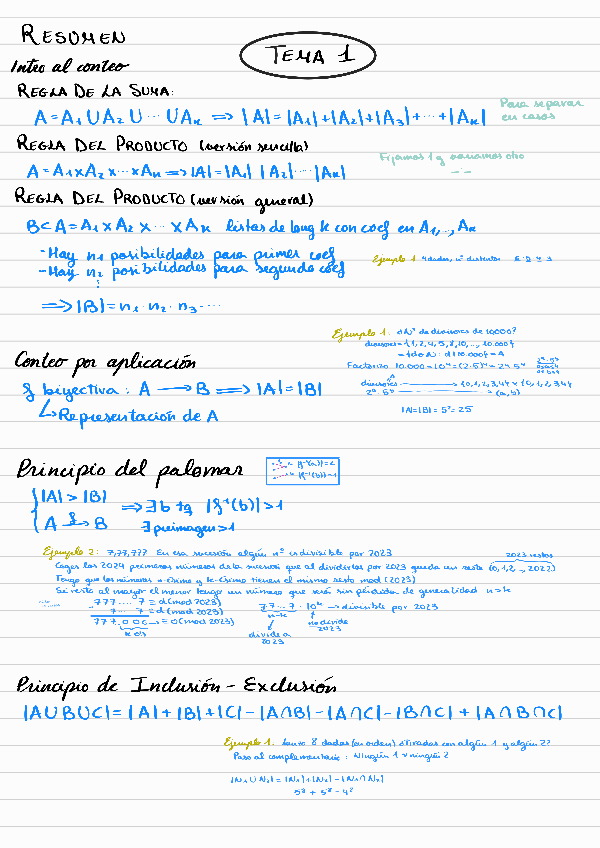 RESUMEN
TEMA 1
Intro al conteo
REGLA DE LA SUMA:
A = A₁ ∪ A₂ ∪ ··· ∪ Aₖ ⟹ |A| = |A₁| + |A₂| + |A₃| + ··· + |Aₖ|
Para separar
en casos
REGLA DEL PRODUCTO (versión sencilla)
A = A₁ x A₂ x ··· x Aₖ ⟹ |A| = |A₁| |A₂| ··· |Aₖ|
Fijamos 1 y variamos otro
REGLA DEL PRODUCTO (versión general)
B ⊂ A = A₁ x A₂ x ··· x Aₖ listas de long k con coef en A₁,.., Aₖ
- Hay n₁ posibilidades para primer coef
- Hay n₂ posibilidades para segundo coef
⋮
Ejemplo 1 4 dados, nº distintos 6·5·4·3
⟹ |B| = n₁ · n₂ · n₃ ····
Ejemplo 1: ¿Nº de divisores de 10000?
divisores = {1, 2, 4, 5, 8, 10, .., 10.000}
= {d∈ℕ : d|10.000} = A
Factorizo 10.000 = 10⁴ = (2·5)⁴ = 2⁴·5⁴
divisores → {0,1,2,3,4} x {0,1,2,3,4}
2ᵃ·5ᵇ → (a,b)
|A| = |B| = 5² = 25
Conteo por aplicación
f biyectiva: A ⟶ B ⟹ |A| = |B|
↳ Representación de A
Principio del palomar
{ |A| > |B|
A →f B
⟹ ∃ b tq |f⁻¹(b)| > 1
∃ preimagen > 1
Ejemplo 2: 7,77,777 En esa sucesión algún nº es divisible por 2023
Cojas los 2024 primeros números de la sucesión que al dividirlos por 2023 queda un resto (0,1,2,..,2022)
2023 restos
Tengo que los números n-ésimo y k-ésimo tienen el mismo resto mod (2023)
Si resto al mayor el menor tengo un número que será sin pérdida de generalidad n>k
777....7 ≡ d (mod 2023)
7...7 ≡ d (mod 2023)
777..000 ≡ 0 (mod 2023)
k 0's
77..7 · 10ᵏ → divisible por 2023
n-k
divide a
2023
no divide
2023
Principio de Inclusión - Exclusión
|A∪B∪C| = |A| + |B| + |C| - |A∩B| - |A∩C| - |B∩C| + |A∩B∩C|
Ejemplo 1. Lanzo 8 dados (en orden) ¿tiradas con algún 1 y algún 2?
Paso al complementario: Ningún 1 o ningún 2
|N₁∪N₂| = |N₁| + |N₂| - |N₁∩N₂|
5⁸ + 5⁸ - 4⁸